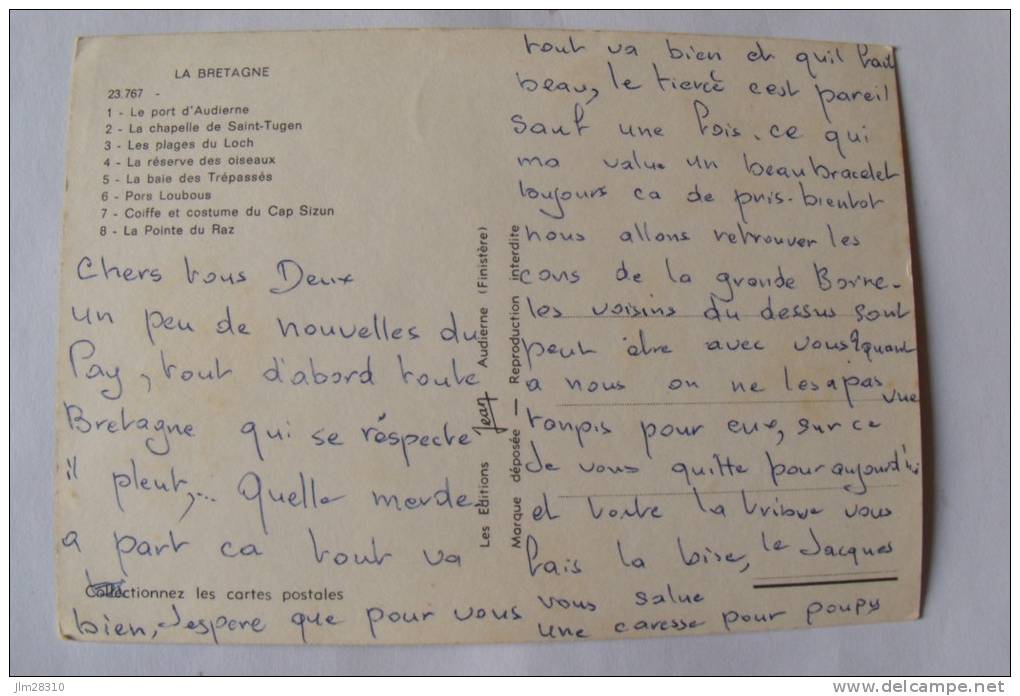 LA BRETAGNE
23.767 -
1 - Le port d'Audierne
2 - La chapelle de Saint-Tugen
3 - Les plages du Loch
4 - La réserve des oiseaux
5 - La baie des Trépassés
6 - Pors Loubous
7 - Coiffe et costume du Cap Sizun
8 - La Pointe du Raz
Chers tous Deux
un peu de nouvelles du
Pay, tout d'abord toute
Bretagne qui se réspecte
il pleut,... Quelle merde
a part ca tout va
Collectionnez les cartes postales
bien, J'espere que pour vous
Les Editions Jean Audierne (Finistère)
Marque déposée — Reproduction interdite
tout va bien et quil fait
beau, le tiercé cest pareil
sauf une fois. ce qui
ma value un beau bracelet
toujours ca de pris. bientot
nous allons retrouver les
cons de la grande Borne.
les voisins du dessus sont
peut être avec vous? quant
a nous on ne les a pas
vue
tanpis pour eux, sur ce
Je vous quitte pour aujourd'hui
et toute la tribue vous
fais la bise, le Jacques
vous salue
une caresse pour poupy
jlm28310
delcampe.net